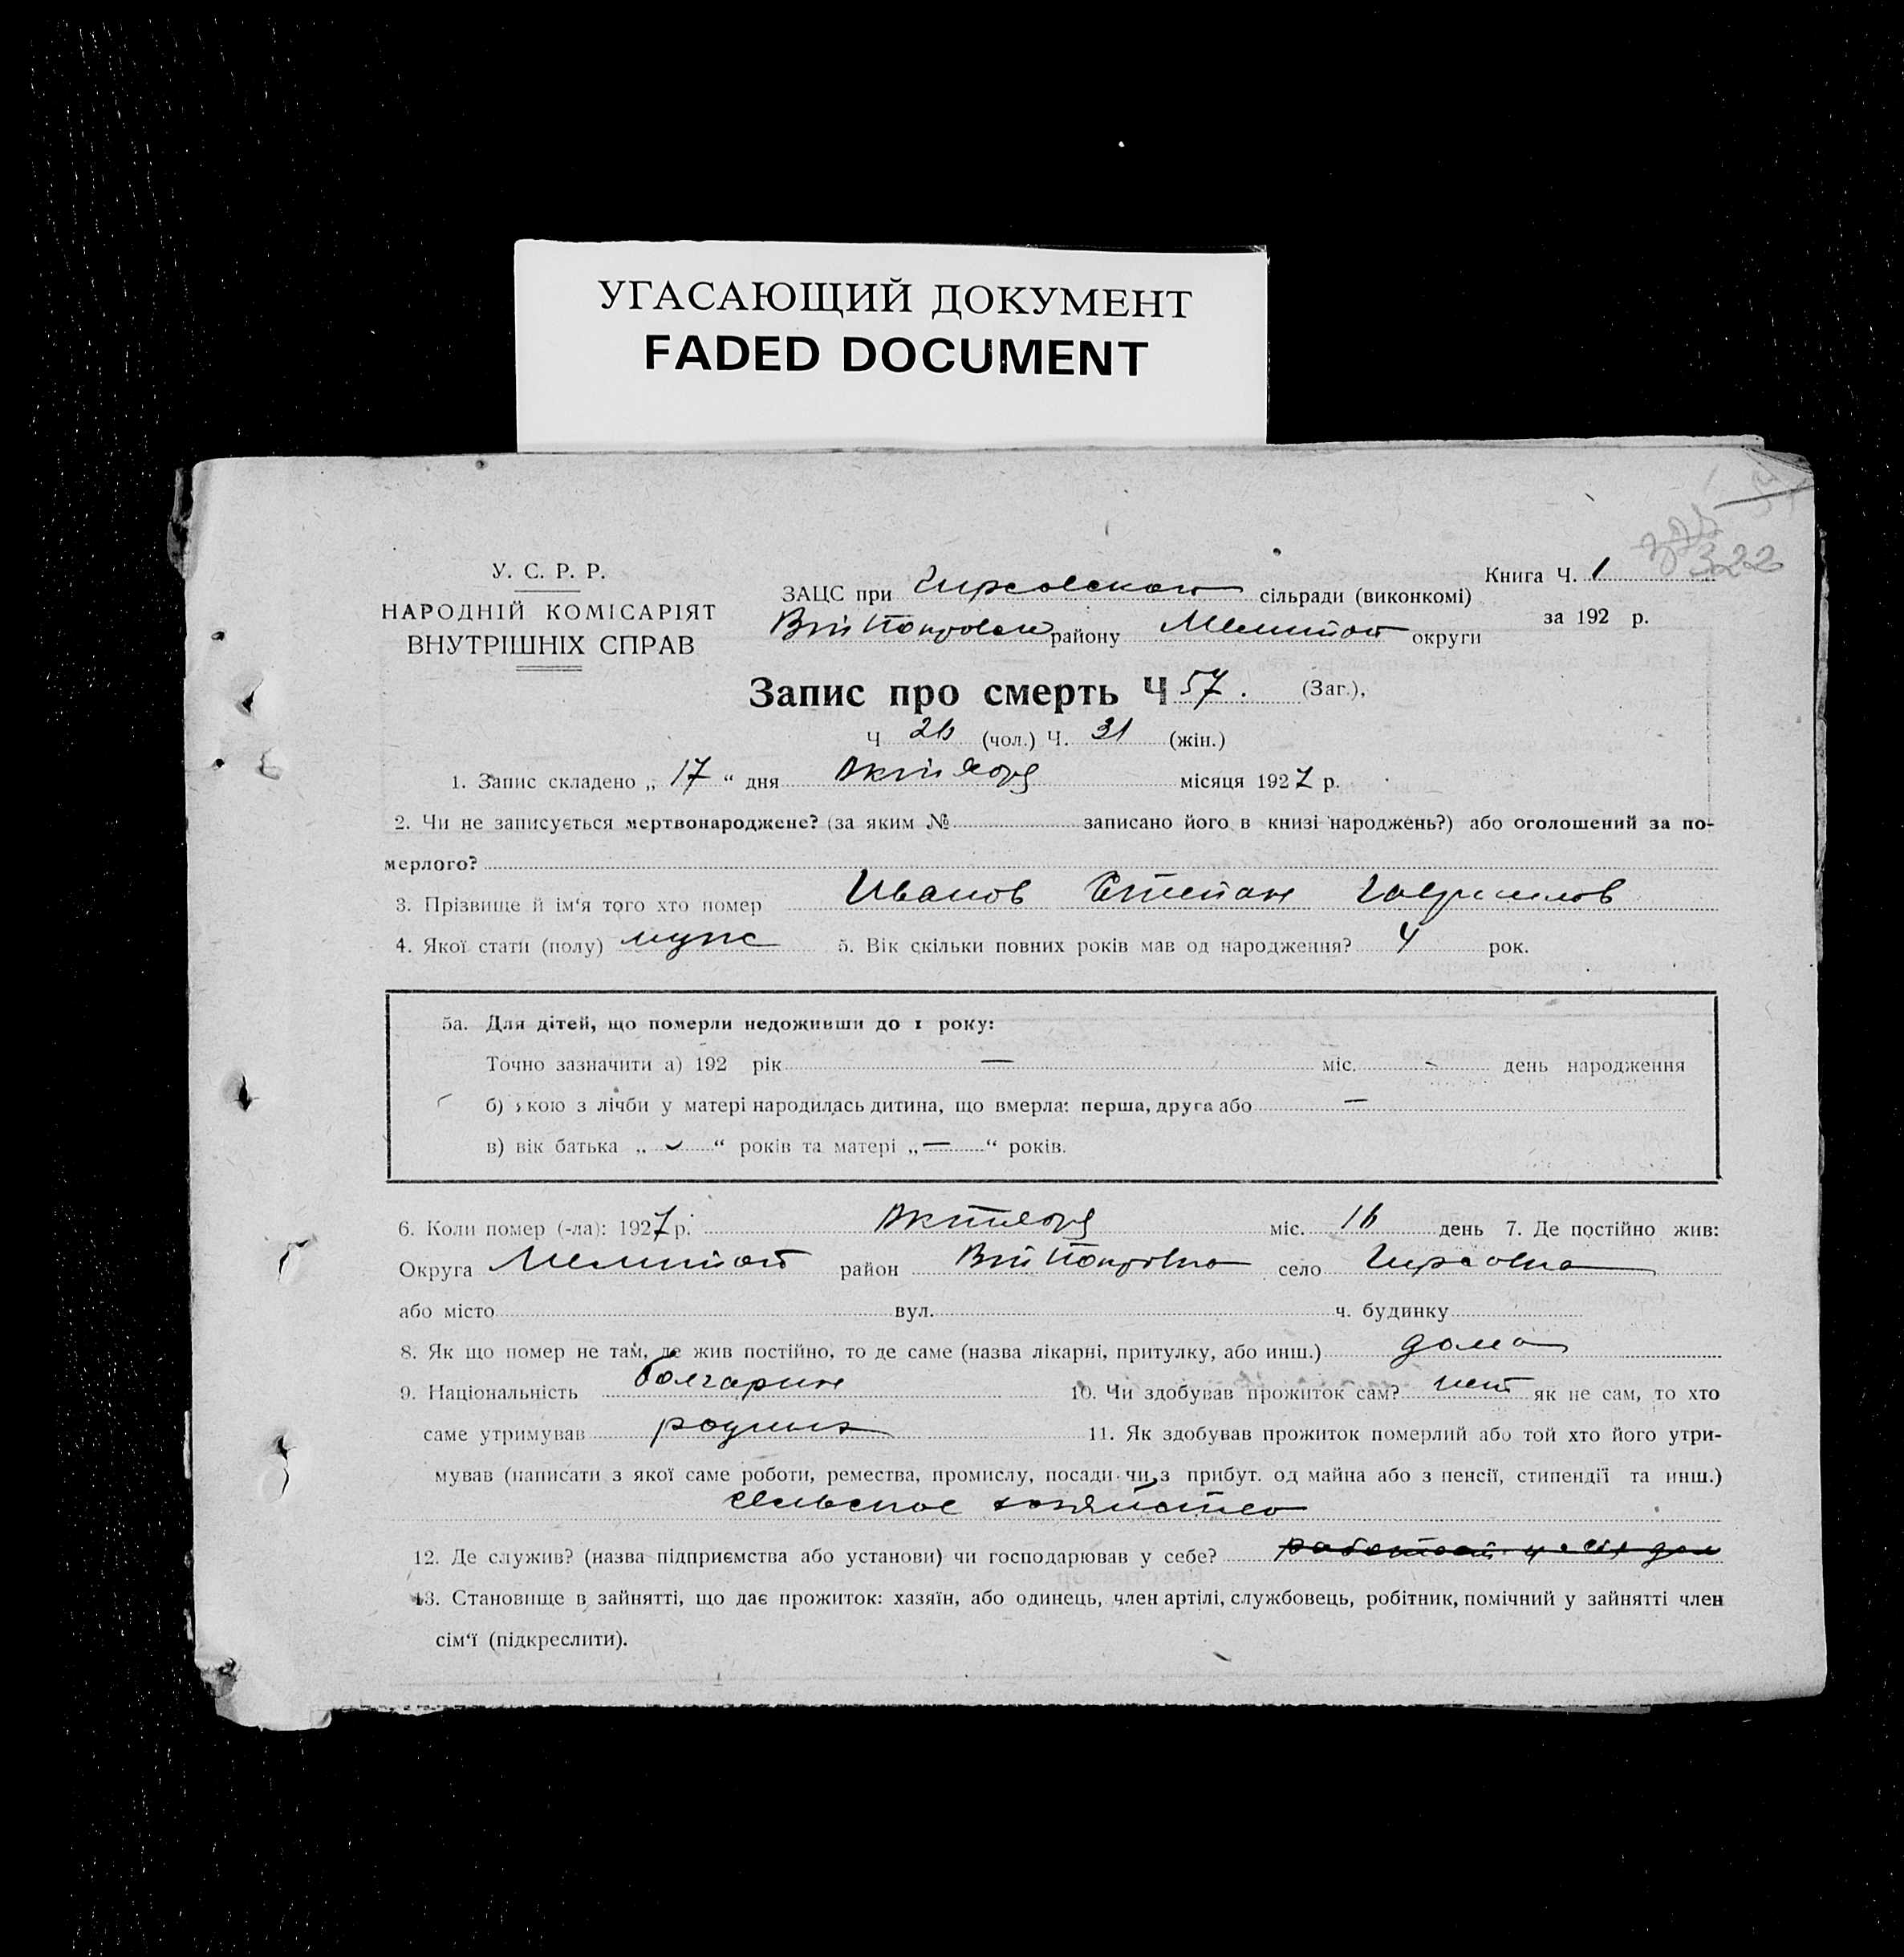 УГАСАЮЩИЙ ДОКУМЕНТ
FADED DOCUMENT
322
У. С. Р. Р.
НАРОДНІЙ КОМІСАРІЯТ
ВНУТРІШНІХ СПРАВ
ЗАЦС при Гирсовском сільради (виконкомі)
району Мелитоп округи
Книга Ч. 1
за 192 р.
Запис про смерть Ч 57. (Заг.),
Ч 26 (чол.) Ч. 31 (жін.)
1. Запис складено „ 17 “ дня Октября місяця 1927 р.
2. Чи не записується мертвонароджене? (за яким № записано його в книзі народжень?) або оголошений за по-
мерлого?
3. Прізвище й ім‘я того хто помер Иванов Степан Гаврилов
4. Якої статі (полу) муж 5. Вік скільки повних років мав од народження? 4 рок.
5а. Для дітей, що померли недоживши до 1 року:
Точно зазначити а) 192 рік — міс. - день народження
б) якою з лічби у матері народилась дитина, що вмерла: перша, друга або —
в) вік батька „ “ років та матері „—“ років.
6. Коли помер (-ла): 1927 р. Октября міс. 16 день 7. Де постійно жив:
Округа Мелитоп район село Гирсовка
або місто вул. ч. будинку
8. Як що помер не там, де жив постійно, то де саме (назва лікарні, притулку, або инш.) дома
9. Національність болгарин 10. Чи здобував прожиток сам? нет як не сам, то хто
саме утримував 11. Як здобував прожиток померлий або той хто його утри-
мував (написати з якої саме роботи, ремества, промислу, посади чи з прибут. од майна або з пенсії, стипендії та инш.)
сельское хозяйство
12. Де служив? (назва підприємства або установи) чи господарював у себе?
13. Становище в зайнятті, що дає прожиток: хазяїн, або одинець, член артілі, службовець, робітник, помічний у зайнятті член
сім‘ї (підкреслити).